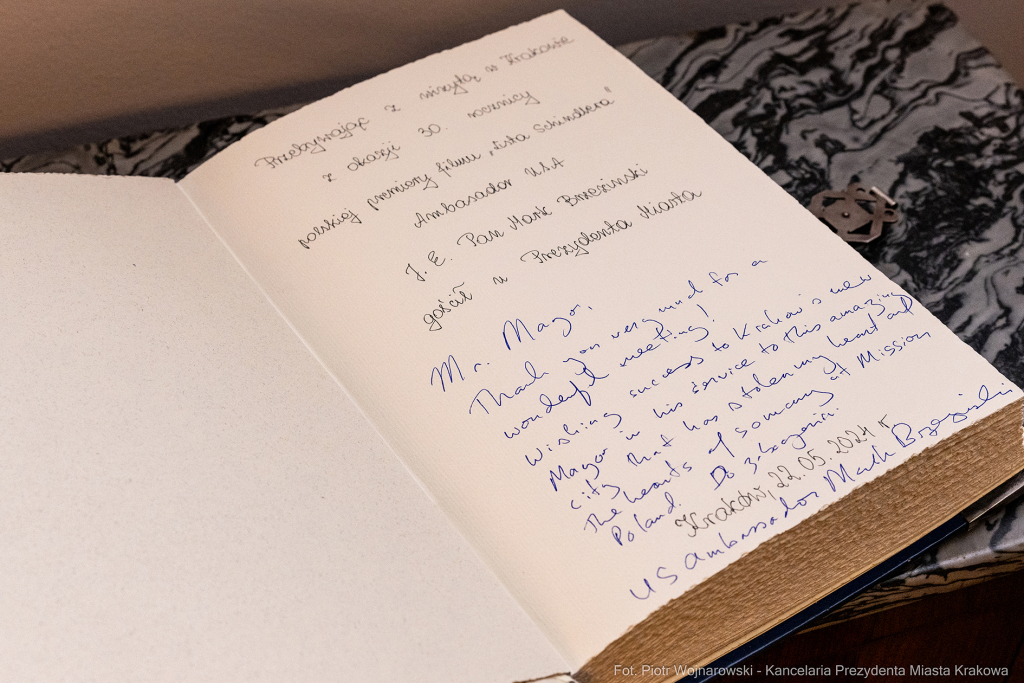 Przebywając z wizytą w Krakowie
z okazji 30. rocznicy
polskiej premiery filmu „Lista Schindlera"
Ambasador USA
J. E. Pan Mark Brzezinski
gościł u Prezydenta Miasta
Mr. Mayor,
Thank you very much for a
wonderful meeting!
Wishing success to Krakow's new
Mayor in his service to this amazing
city that has stolen my heart and
the hearts of so many at Mission
Poland. Do zobaczenia.
Kraków, 22.05.2024 r.
US Ambassador Mark Brzezinski
Fot. Piotr Wojnarowski - Kancelaria Prezydenta Miasta Krakowa